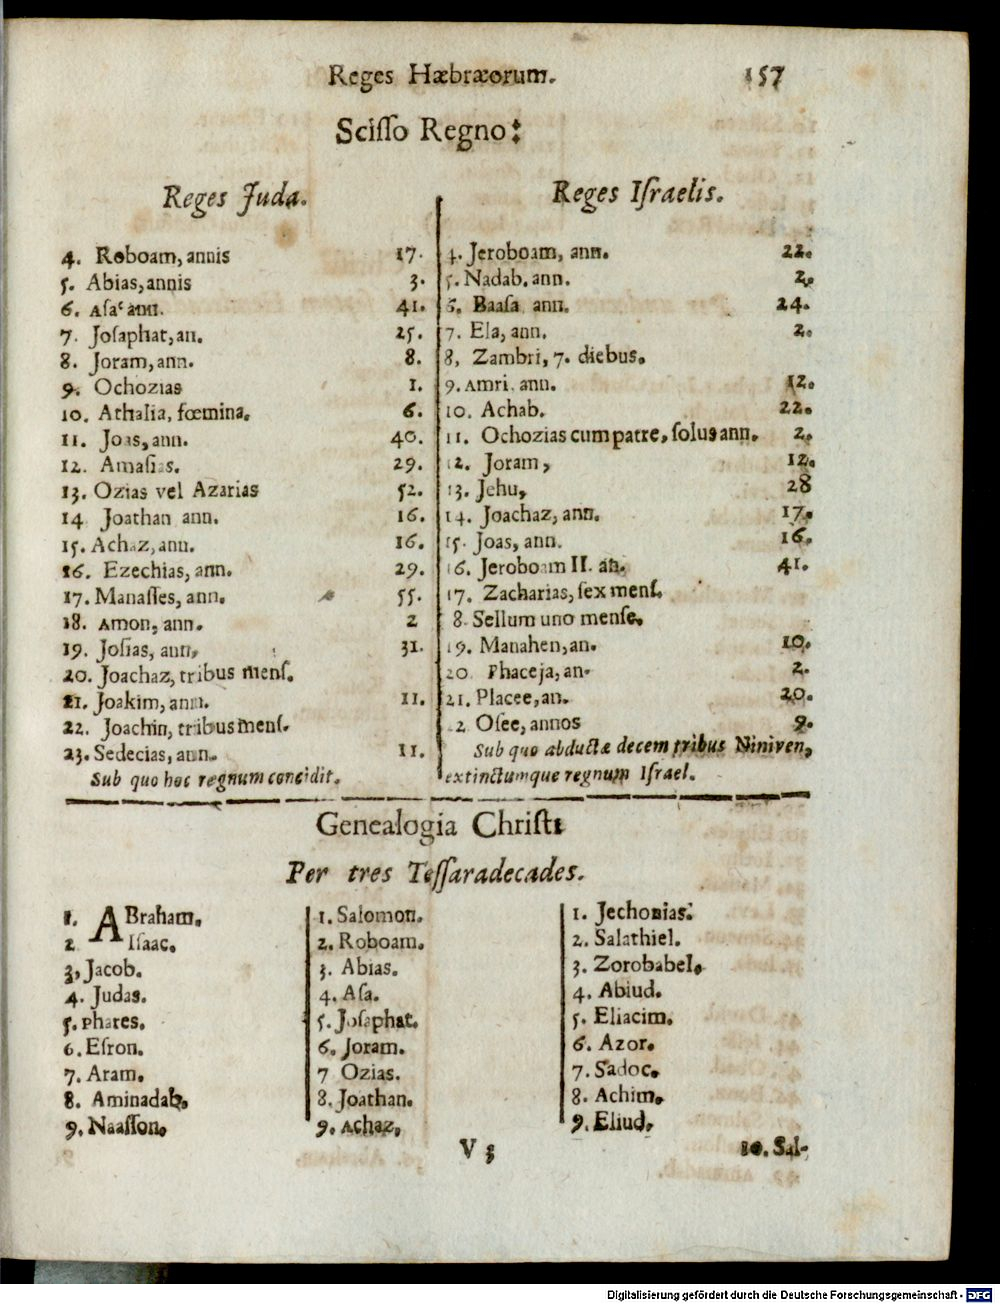 Reges Hæbræorum. 157
Scisso Regno:
Reges Juda.
4. Roboam, annis 17.
5. Abias, annis 3.
6. Asa, ann. 41.
7. Josaphat, an. 25.
8. Joram, ann. 8.
9. Ochozias 1.
10. Athalia, fœmina. 6.
11. Joas, ann. 40.
12. Amasias. 29.
13. Ozias vel Azarias 52.
14 Joathan ann. 16.
15. Achaz, ann. 16.
16. Ezechias, ann. 29.
17. Manasses, ann. 55.
18. Amon, ann. 2
19. Josias, ann. 31.
20. Joachaz, tribus mens.
21. Joakim, ann. 11.
22. Joachin, tribus mens.
23. Sedecias, ann. 11.
Sub quo hoc regnum concidit.
Reges Israelis.
4. Jeroboam, ann. 22.
5. Nadab. ann. 2.
6. Baasa ann. 24.
7. Ela, ann. 2.
8, Zambri, 7. diebus.
9. Amri. ann. 12.
10. Achab. 22.
11. Ochozias cum patre, solus ann. 2.
12. Joram, 12.
13. Jehu, 28
14. Joachaz, ann. 17.
15. Joas, ann. 16.
16. Jeroboam II. an. 41.
17. Zacharias, sex mens.
8. Sellum uno mense.
19. Manahen, an. 10.
20 Phaceja, an. 2.
21. Placee, an. 20.
2 Osee, annos 9.
Sub quo abductæ decem tribus Niniven,
extinctumque regnum Israel.
Genealogia Christi
Per tres Tessaradecades.
1. ABraham.
2 Isaac.
3, Jacob.
4. Judas.
5. Phares.
6. Esron.
7. Aram.
8. Aminadab.
9. Naasson.
1. Salomon.
2. Roboam.
3. Abias.
4. Asa.
5. Josaphat.
6. Joram.
7 Ozias.
8. Joathan.
9. Achaz,
1. Jechonias.
2. Salathiel.
3. Zorobabel.
4. Abiud.
5. Eliacim.
6. Azor.
7. Sadoc.
8. Achim.
9. Eliud.
V 3 10. Sal-
Digitalisierung gefördert durch die Deutsche Forschungsgemeinschaft - DFG